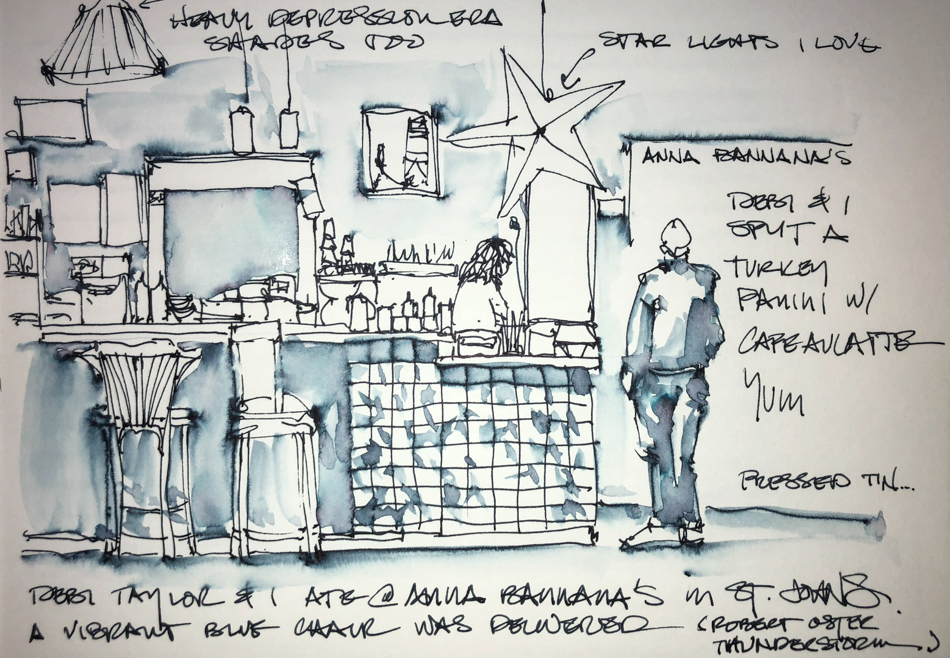 HEAVY DEPRESSION ERA
SHADES TOO
STAR LIGHTS I LOVE
ANNA BANNANA'S
DEBI & I
SPLIT A
TURKEY
PANINI W/
CAFEAULATTE
YUM
PRESSED TIN...
DEBI TAYLOR & I ATE @ ANNA BANNANA'S IN ST. JOHNS.
A VIBRANT BLUE CHAIR WAS DELIVERED (ROBERT OSTER
THUNDERSTORM)